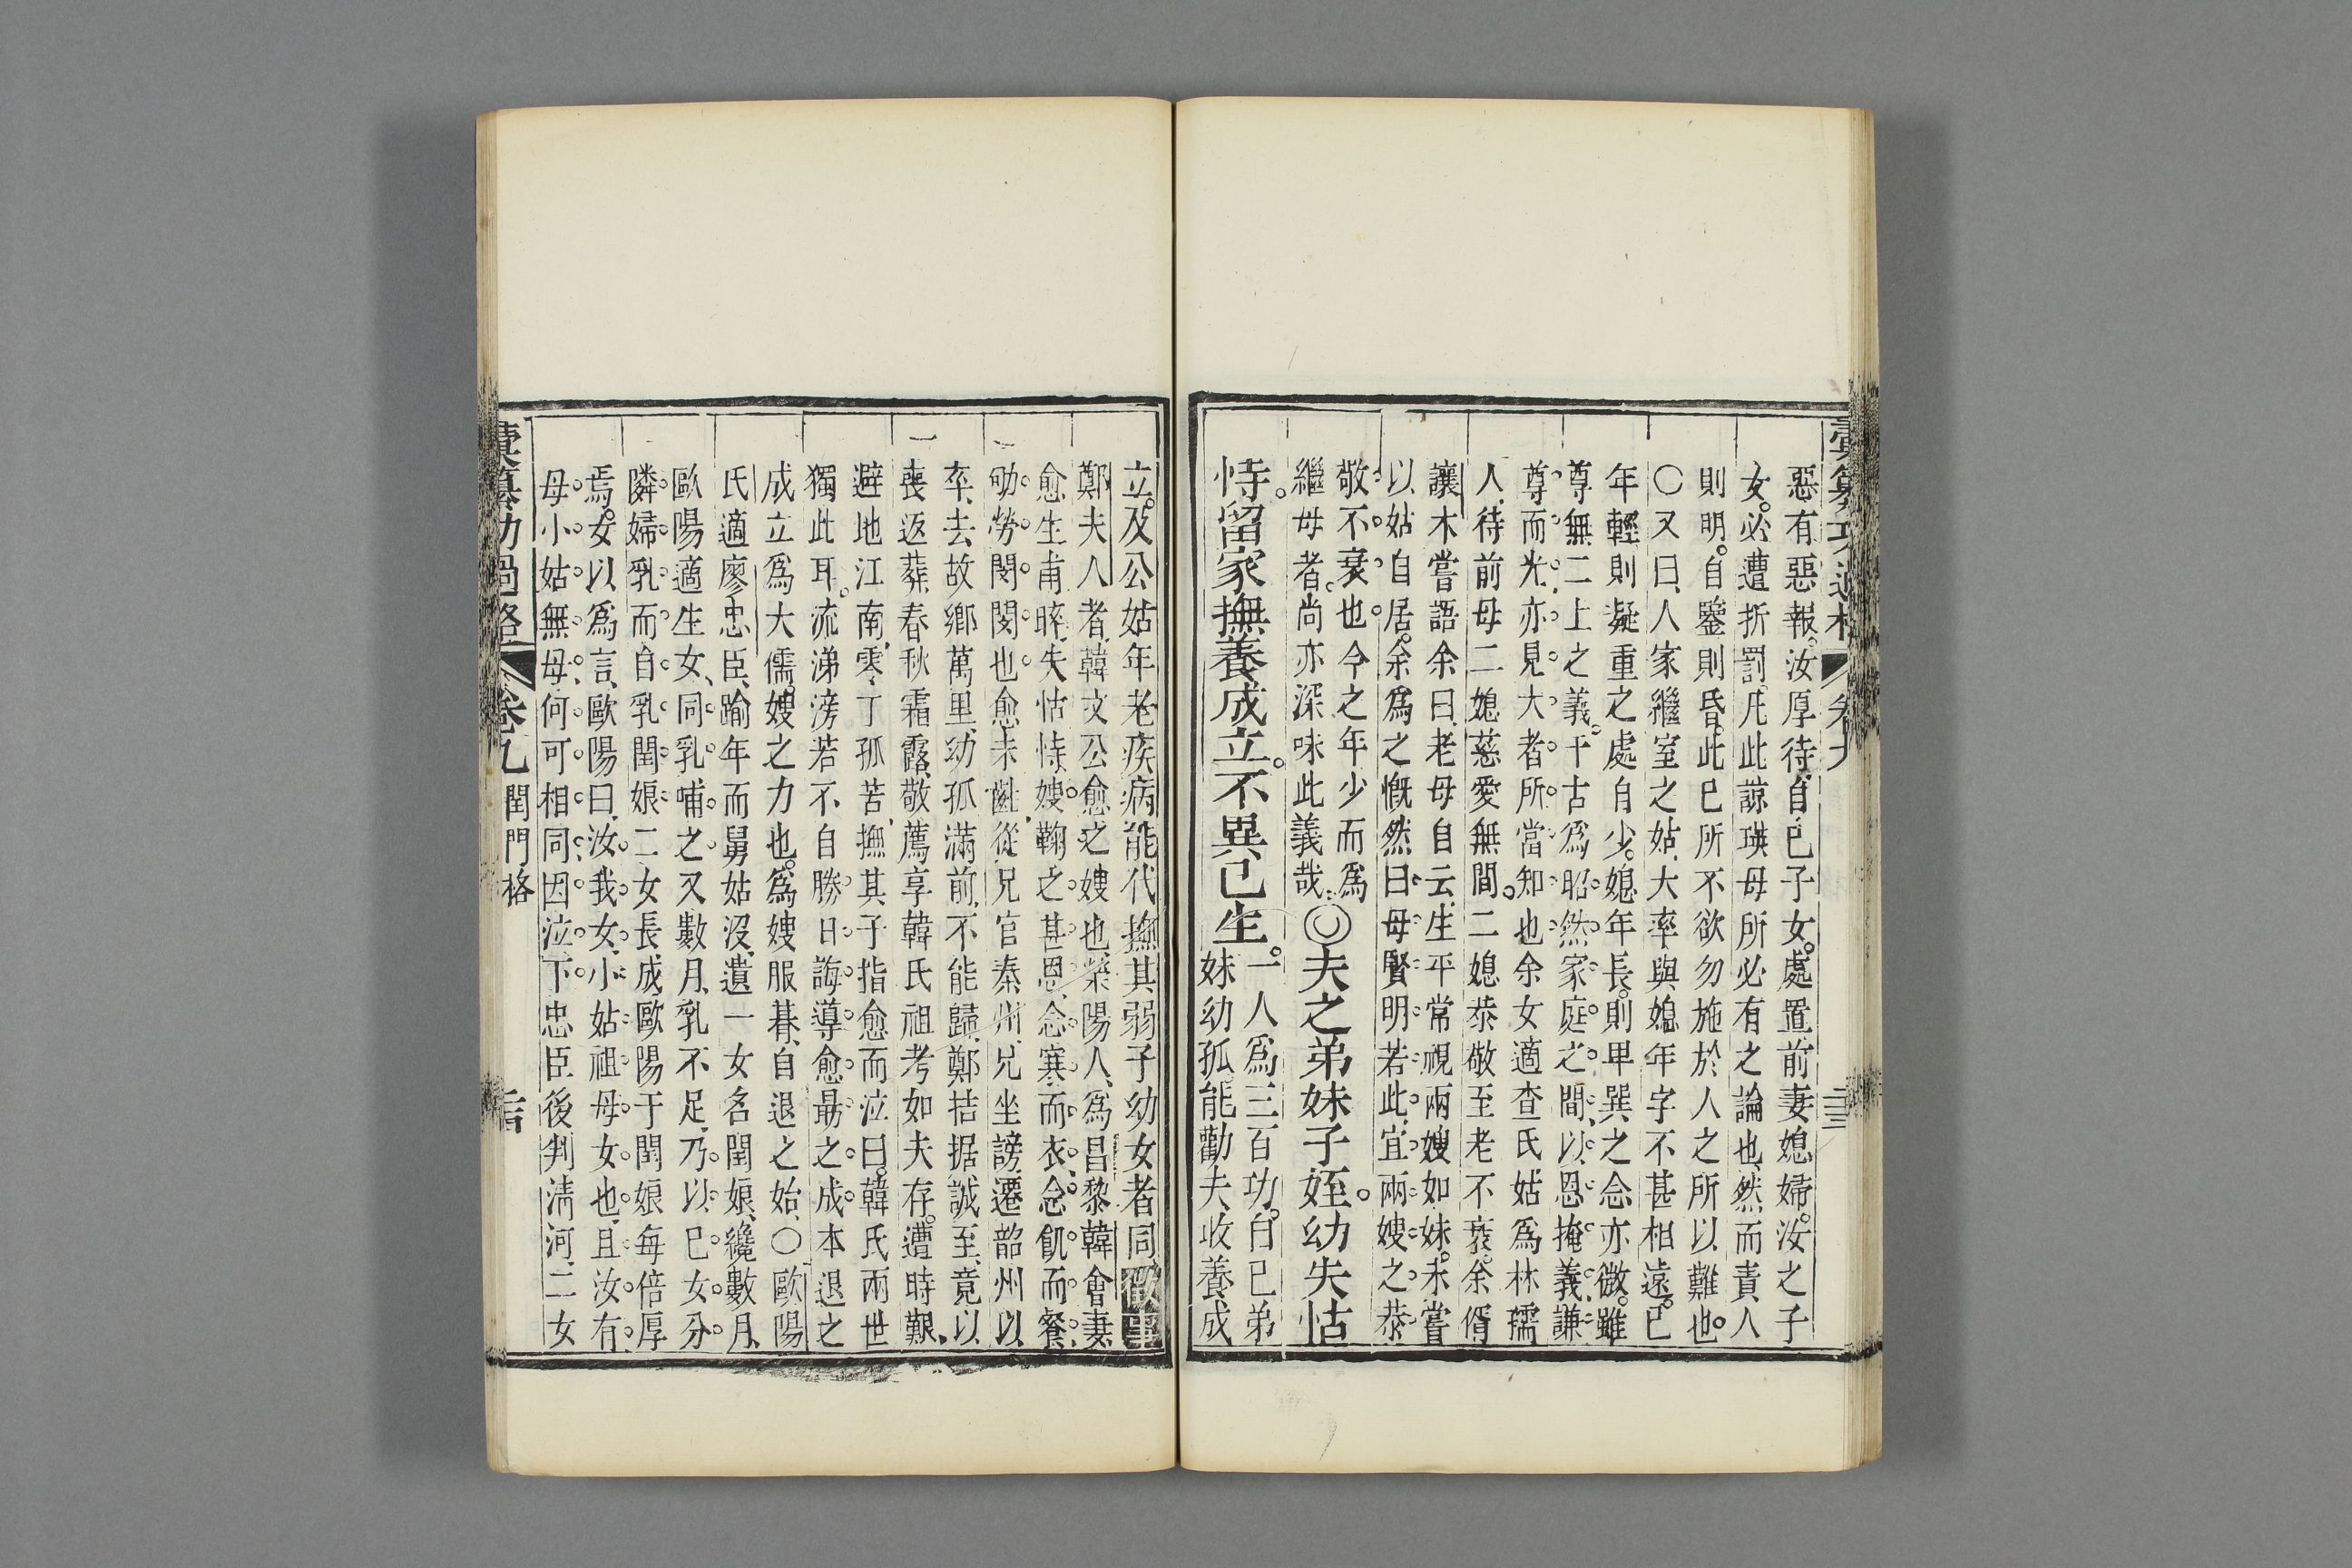 彚纂功過格 卷九 二十三
惡有惡報。汝厚待自己子女。處置前妻媳婦。汝之子
女。必遭折罰。凡此諒瑛母所必有之論也。然而責人
則明。自鑒則昏。此已所不欲勿施於人之所以難也。
○又曰、人家繼室之姑、大率與媳年字不甚相遠。已
年輕則凝重之處自少。媳年長。則卑巽之念亦微。雖
尊無二上之義。千古爲昭。然家庭之間、以恩掩義。謙
尊而光、亦見大者所當知也余女適查氏姑爲林孺
人、待前母二媳慈愛無間。二媳恭敬至老不衰。余偦
讓木嘗語余曰、老母自云、生平常視兩嫂如妹。未嘗
以姑自居。余爲之慨然曰、母賢明若此、宜兩嫂之恭
敬不衰也今之年少而爲
繼母者。尚亦深味此義哉、
◎夫之弟妹子姪。幼失怙
恃。留家撫養成立。不異己生。
一人爲三百功。自己弟
妹幼孤、能勸夫收養成
立。及公姑年老疾病能代撫其弱子幼女者同、徵事
鄭夫人者、韓文公愈之嫂也、滎陽人、爲昌黎韓會妻、
愈生甫晬、失怙恃、嫂鞠之甚恩、念寒而衣、念飢而餐、
劬勞閔閔也愈未齔、從兄官秦州、兄坐謗遷韶州以
卒、去故鄉萬里、幼孤滿前、不能歸、鄭拮据誠至、竟以
喪返葬、春秋霜露、敬薦享韓氏祖考如夫存。遭時艱、
避地江南、零丁孤苦、撫其子指愈而泣曰、韓氏兩世
獨此耳。流涕滂若不自勝日誨導愈勗之成本退之
成立爲大儒。嫂之力也。爲嫂服朞、自退之始、○歐陽
氏適廖忠臣、踰年而舅姑沒、遺一女名閏娘、纔數月、
歐陽適生女、同乳哺之又數月、乳不足、乃以己女分
隣婦乳而自乳閏娘二女長成歐陽于閏娘每倍厚
焉。女以爲言、歐陽曰、汝我女、小姑祖母女也、且汝有
母小姑無母、何可相同、因泣下忠臣後判淸河、二女
彚纂功過格 卷九 閨門格 二十四